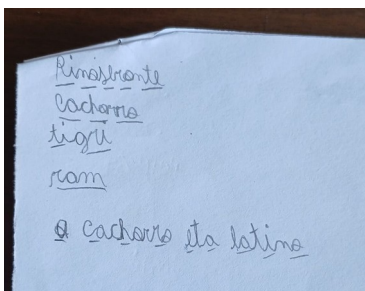 Rinosbronte
Cachorro
tigri
ram
o cachorro eta latino